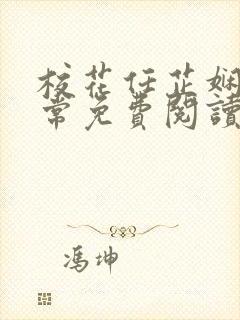 校花任芷娴
常免費閱讀
馮坤